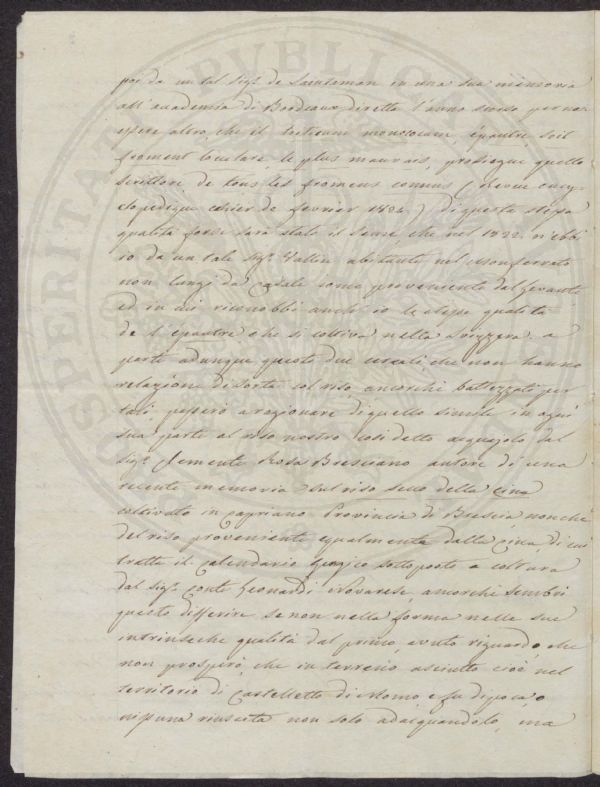 poi da un tal Sigr. de Saintaman in una sua memoria
all'academia di Bordeaux diretta l'anno scorso per non
essere altro, che il triticum monococum, épautre, soit
froment loculare le plus mauvais, prosiegue quello
scrittore, de tous les fromens connus (revue ency-
clopedique cahier de fevrier 1824.) di questa stessa
qualità forse sarà stato il Seme, che nel 1822. n'ebbi
io da un tale Sigr. Vallin abitante nel Monferrato
non lungi da Casale come proveniente dal Levante
ed in cui riconobbi anch'io la stessa qualità
de l'épautre che si coltiva nella Svizzera. a
parte adunque questi due cereali, che non hanno
relazione di sorta col riso, ancorchè battezzati per
tali, passerò a ragionare di quello simile in ogni
sua parte al riso nostro così detto acquajolo dal
Sigr. Clemente Rosa Bresciano autore di una
recente memoria sul riso secco della Cina
coltivato in Capriano Provincia di Brescia, nonchè
del riso proveniente egualmente dalla Cina, di cui
tratta il Calendario Georgico sottoposto a coltura
dal Sigr. Conte Leonardi Novarese, ancorchè sembri
questo differire se non nella forma nelle sue
intrinseche qualità dal primo, avuto riguardo, che
non prosperò, che in terreno asciutto cioè nel
territorio di Castelletto di Momo, e fu di poca, o
nissuna riuscita non solo adacquandolo, ma